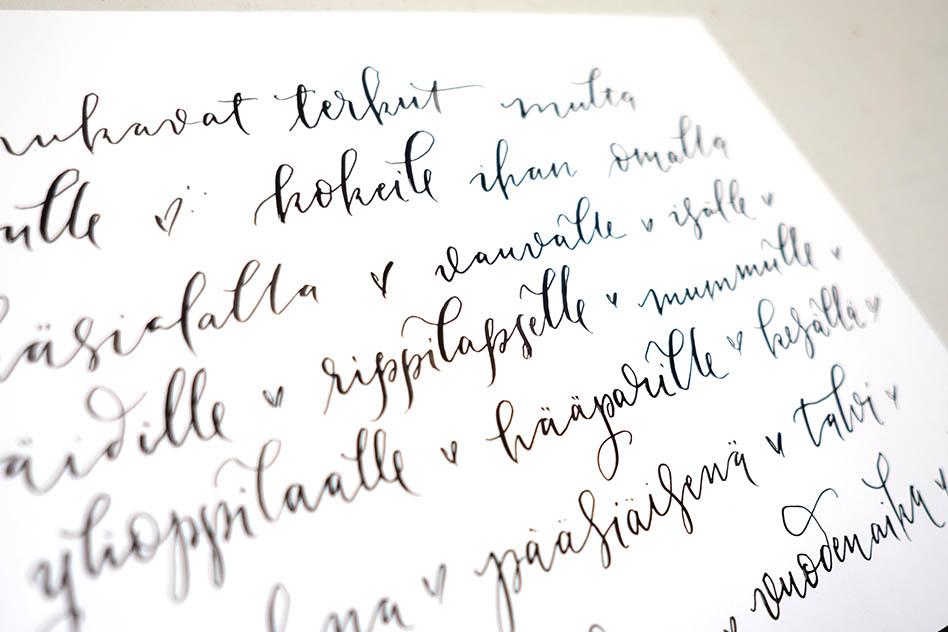 mukavat terkut multa
sulle ♡ kokeile ihan omalla
käsialalla ♥ vauvalle ♥ isälle ♥
äidille ♥ rippilapselle ♥ mummulle ♥
ylioppilaalle ♥ hääparille ♥ kesällä ♥
pääsiäisenä ♥ talvi ♥
vuodenaika ♥